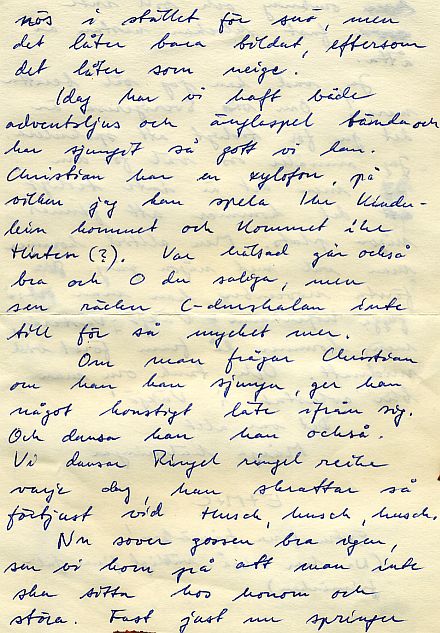 nös i stället för snö, men
det låter bara bildat, eftersom
det låter som neige.
Idag har vi haft både
adventsljus och änglaspel tända och
har sjungit så gott vi kan.
Christian har en xylofon, på
vilken jag kan spela Ihr Kinder-
lein kommet och Kommet ihr
Hirten (?). Var hälsad går också
bra och O du saliga, men
sen räcker C-durskalan inte
till för så mycket mer.
Om man frågar Christian
om han kan sjunga, ger han
något konstigt läte ifrån sig.
Och dansa kan han också.
Vi dansar Ringel ringel reihe
varje dag, han skrattar så
förtjust vid Husch, husch, husch.
Nu sover gossen bra igen,
sen vi kom på att man inte
ska sitta hos honom och
störa. Fast just nu springer